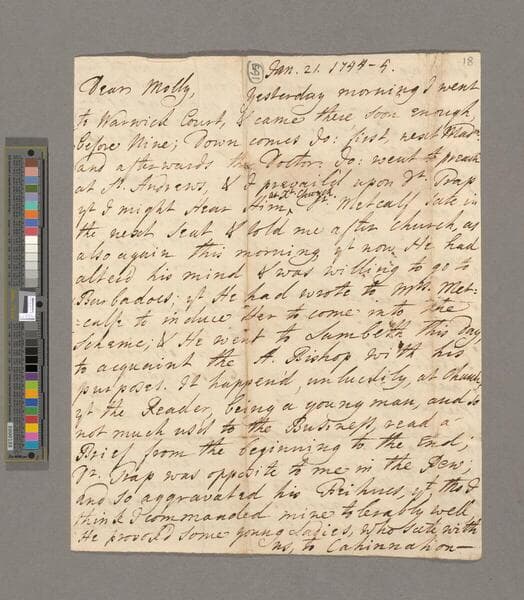 18
(169) Jan. 21. 1744-5.
Dear Molly,
Yesterday morning I went
to Warwick Court, & came there soon enough,
before Nine; Down comes Jo: first, next Mad.m
and afterwards the Doctor; Jo: went to preach
at St. Andrews, & I prevail'd upon Dr. Trap
yt I might hear Him, at Xt. Church Mr. Metcalf sate in
the next Seat & told me after Church, as
also again this morning yt now He had
alter'd his mind & was willing to go to
Barbadoes; yt He had wrote to Mrs. Met-
-calfe to induce Her to come into the
Scheme; & He went to Lambeth this day,
to acquaint the A. Bishop with his
purpose. It happen'd, unluckily, at Church,
yt the Reader, being a young man, and so
not much us'd to the Business, read a
Brief from the beginning to the End;
Dr. Trap was opposite to me in the Pew;
and so aggravated his yt tho' I
think I commanded mine tolerably well
He provok'd some young Ladies, who sate with
us, to Cahinnation-